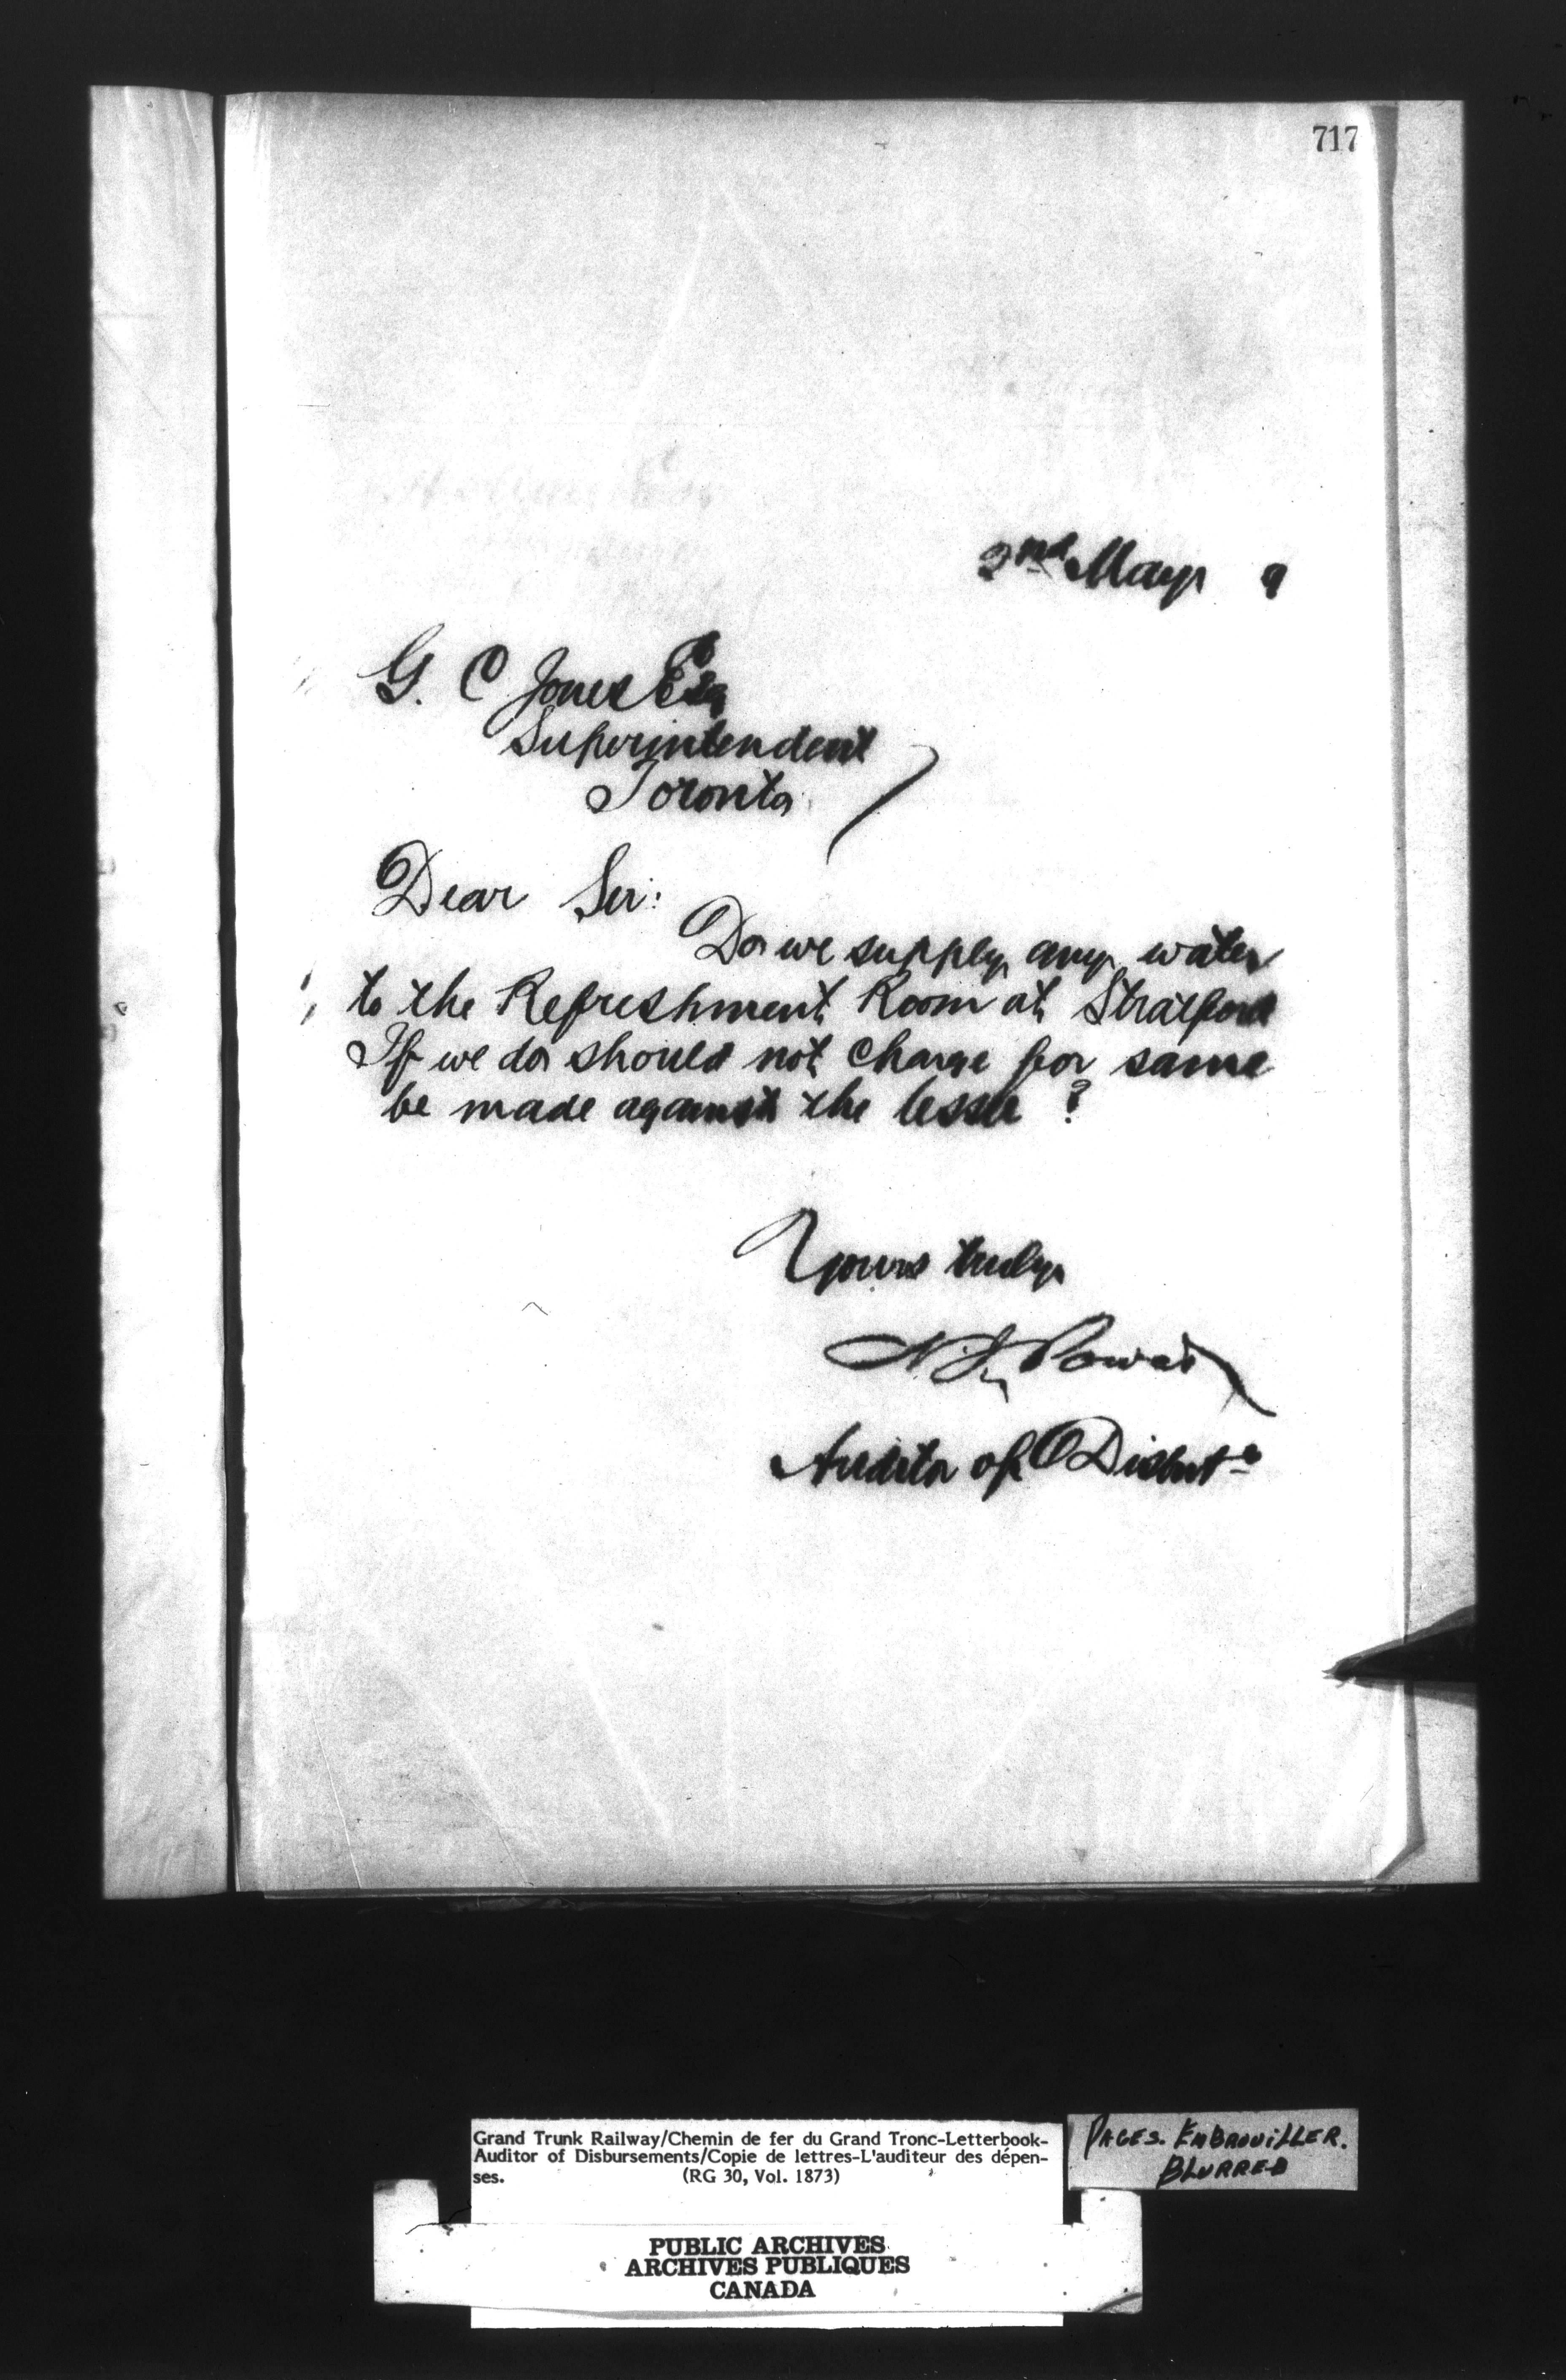 717
2nd May 9
G. C Jones Esq
Superintendent
Toronto
Dear Sir:
Do we supply any water
to the Refreshment Room at Stratford
If we do should not charge for same
be made against the lessee ?
Yours truly
N. J. Power
Auditor of Disbuts
Grand Trunk Railway/Chemin de fer du Grand Tronc-Letterbook-
Auditor of Disbursements/Copie de lettres-L'auditeur des dépen-
ses. (RG 30, Vol. 1873)
PAGES. EMBROUILLER.
BLURRED
PUBLIC ARCHIVES
ARCHIVES PUBLIQUES
CANADA